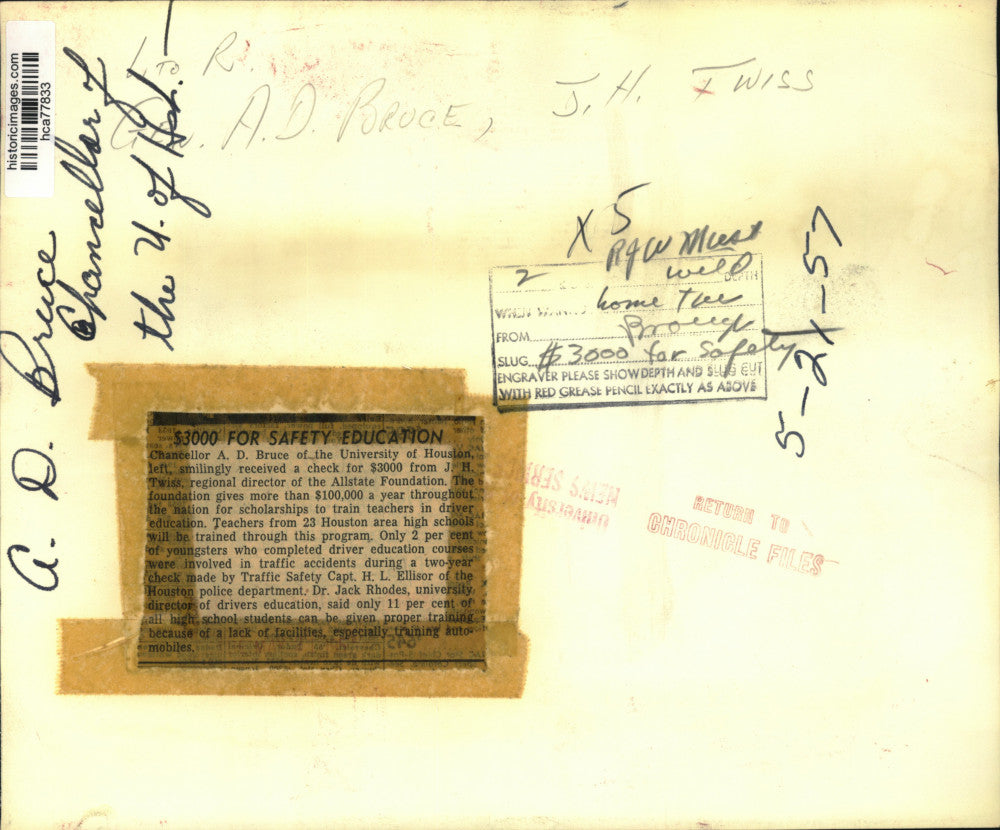 historicimages.com
hca77833
L TO R.
Gen. A.D. BRUCE, J. H. TWISS
A. D. Bruce
Chancellor of
the U. of Hou.
X 5
2
DEPTH
home
FROM
SLUG $3000 for Safety
ENGRAVER PLEASE SHOW DEPTH AND SLUG CUT
WITH RED GREASE PENCIL EXACTLY AS ABOVE
5-21-57
University
NEWS SERV
RETURN TO
CHRONICLE FILES
$3000 FOR SAFETY EDUCATION
Chancellor A. D. Bruce of the University of Houston,
left, smilingly received a check for $3000 from J. H.
Twiss, regional director of the Allstate Foundation. The
foundation gives more than $100,000 a year throughout
the nation for scholarships to train teachers in driver
education. Teachers from 23 Houston area high schools
will be trained through this program. Only 2 per cent
of youngsters who completed driver education courses
were involved in traffic accidents during a two-year
check made by Traffic Safety Capt. H. L. Ellisor of the
Houston police department. Dr. Jack Rhodes, university
director of drivers education, said only 11 per cent of
all high school students can be given proper training
because of a lack of facilities, especially training auto-
mobiles.